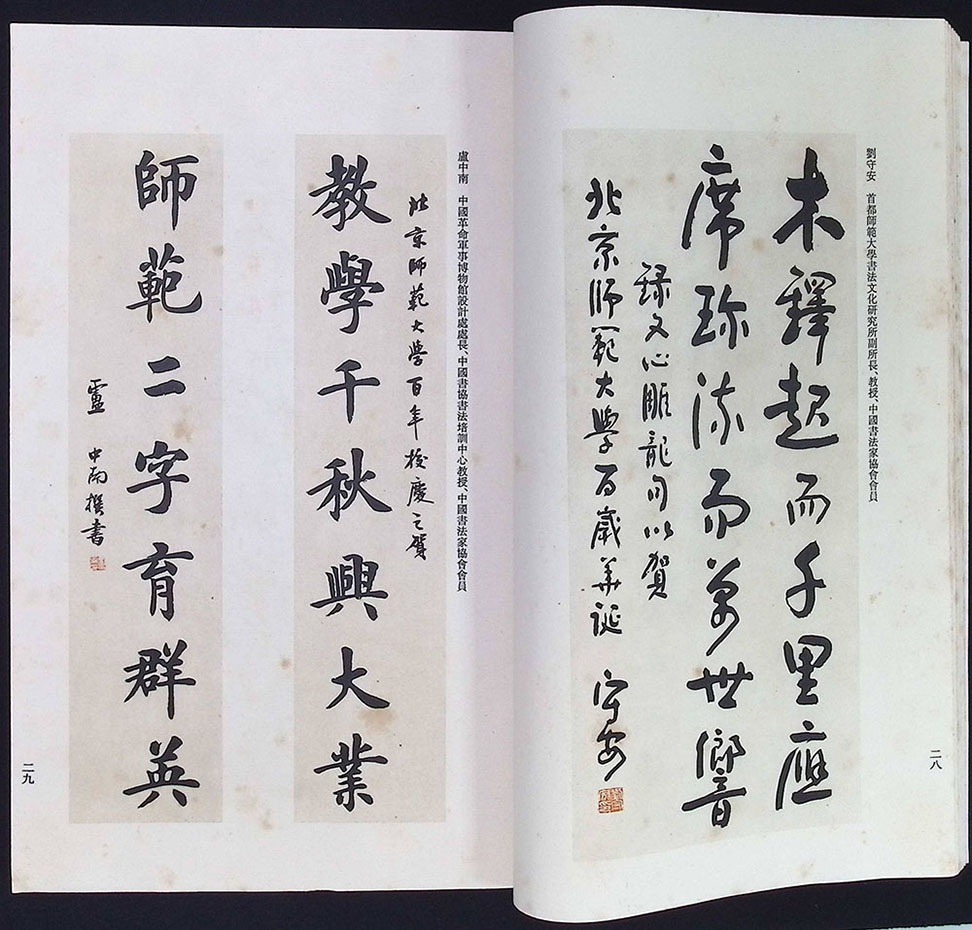 劉守安　首都師範大學書法文化研究所副所長、教授、中國書法家協會會員
木鐸起而千里應
席珍流而萬世響
錄文心雕龍句以賀
北京師範大學百歲華誕 守安
二八
盧中南　中國革命軍事博物館設計處處長、中國書協書法培訓中心教授、中國書法家協會會員
北京師範大学百年校慶之賀
教學千秋興大業
師範二字育群英
盧中南撰書
二九